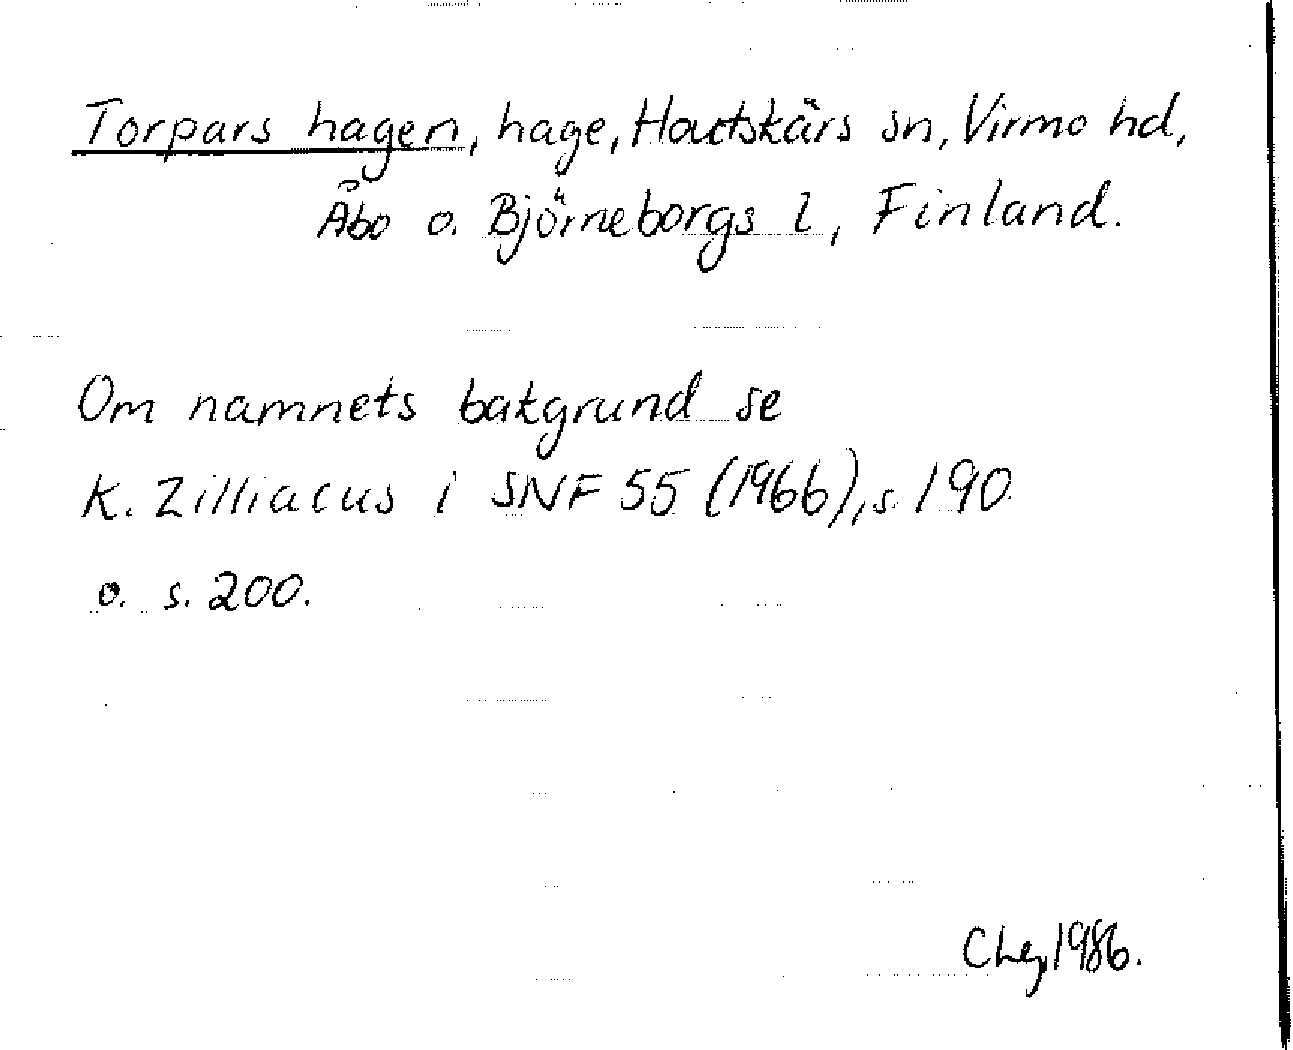 Torpars hagen, hage, Houtskärs sn, Virmo hd,
Åbo o. Björneborgs l, Finland.
Om namnets bakgrund se
K. Zilliacus i SNF 55 (1966), s. 190
o. s. 200.
1986.